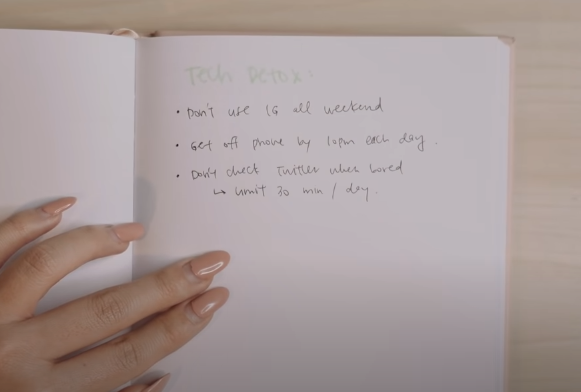 Tech Detox:
• Don't use IG all weekend
• Get off phone by 10pm each day.
• Don't check Twitter when bored
↳ limit 30 min / day.